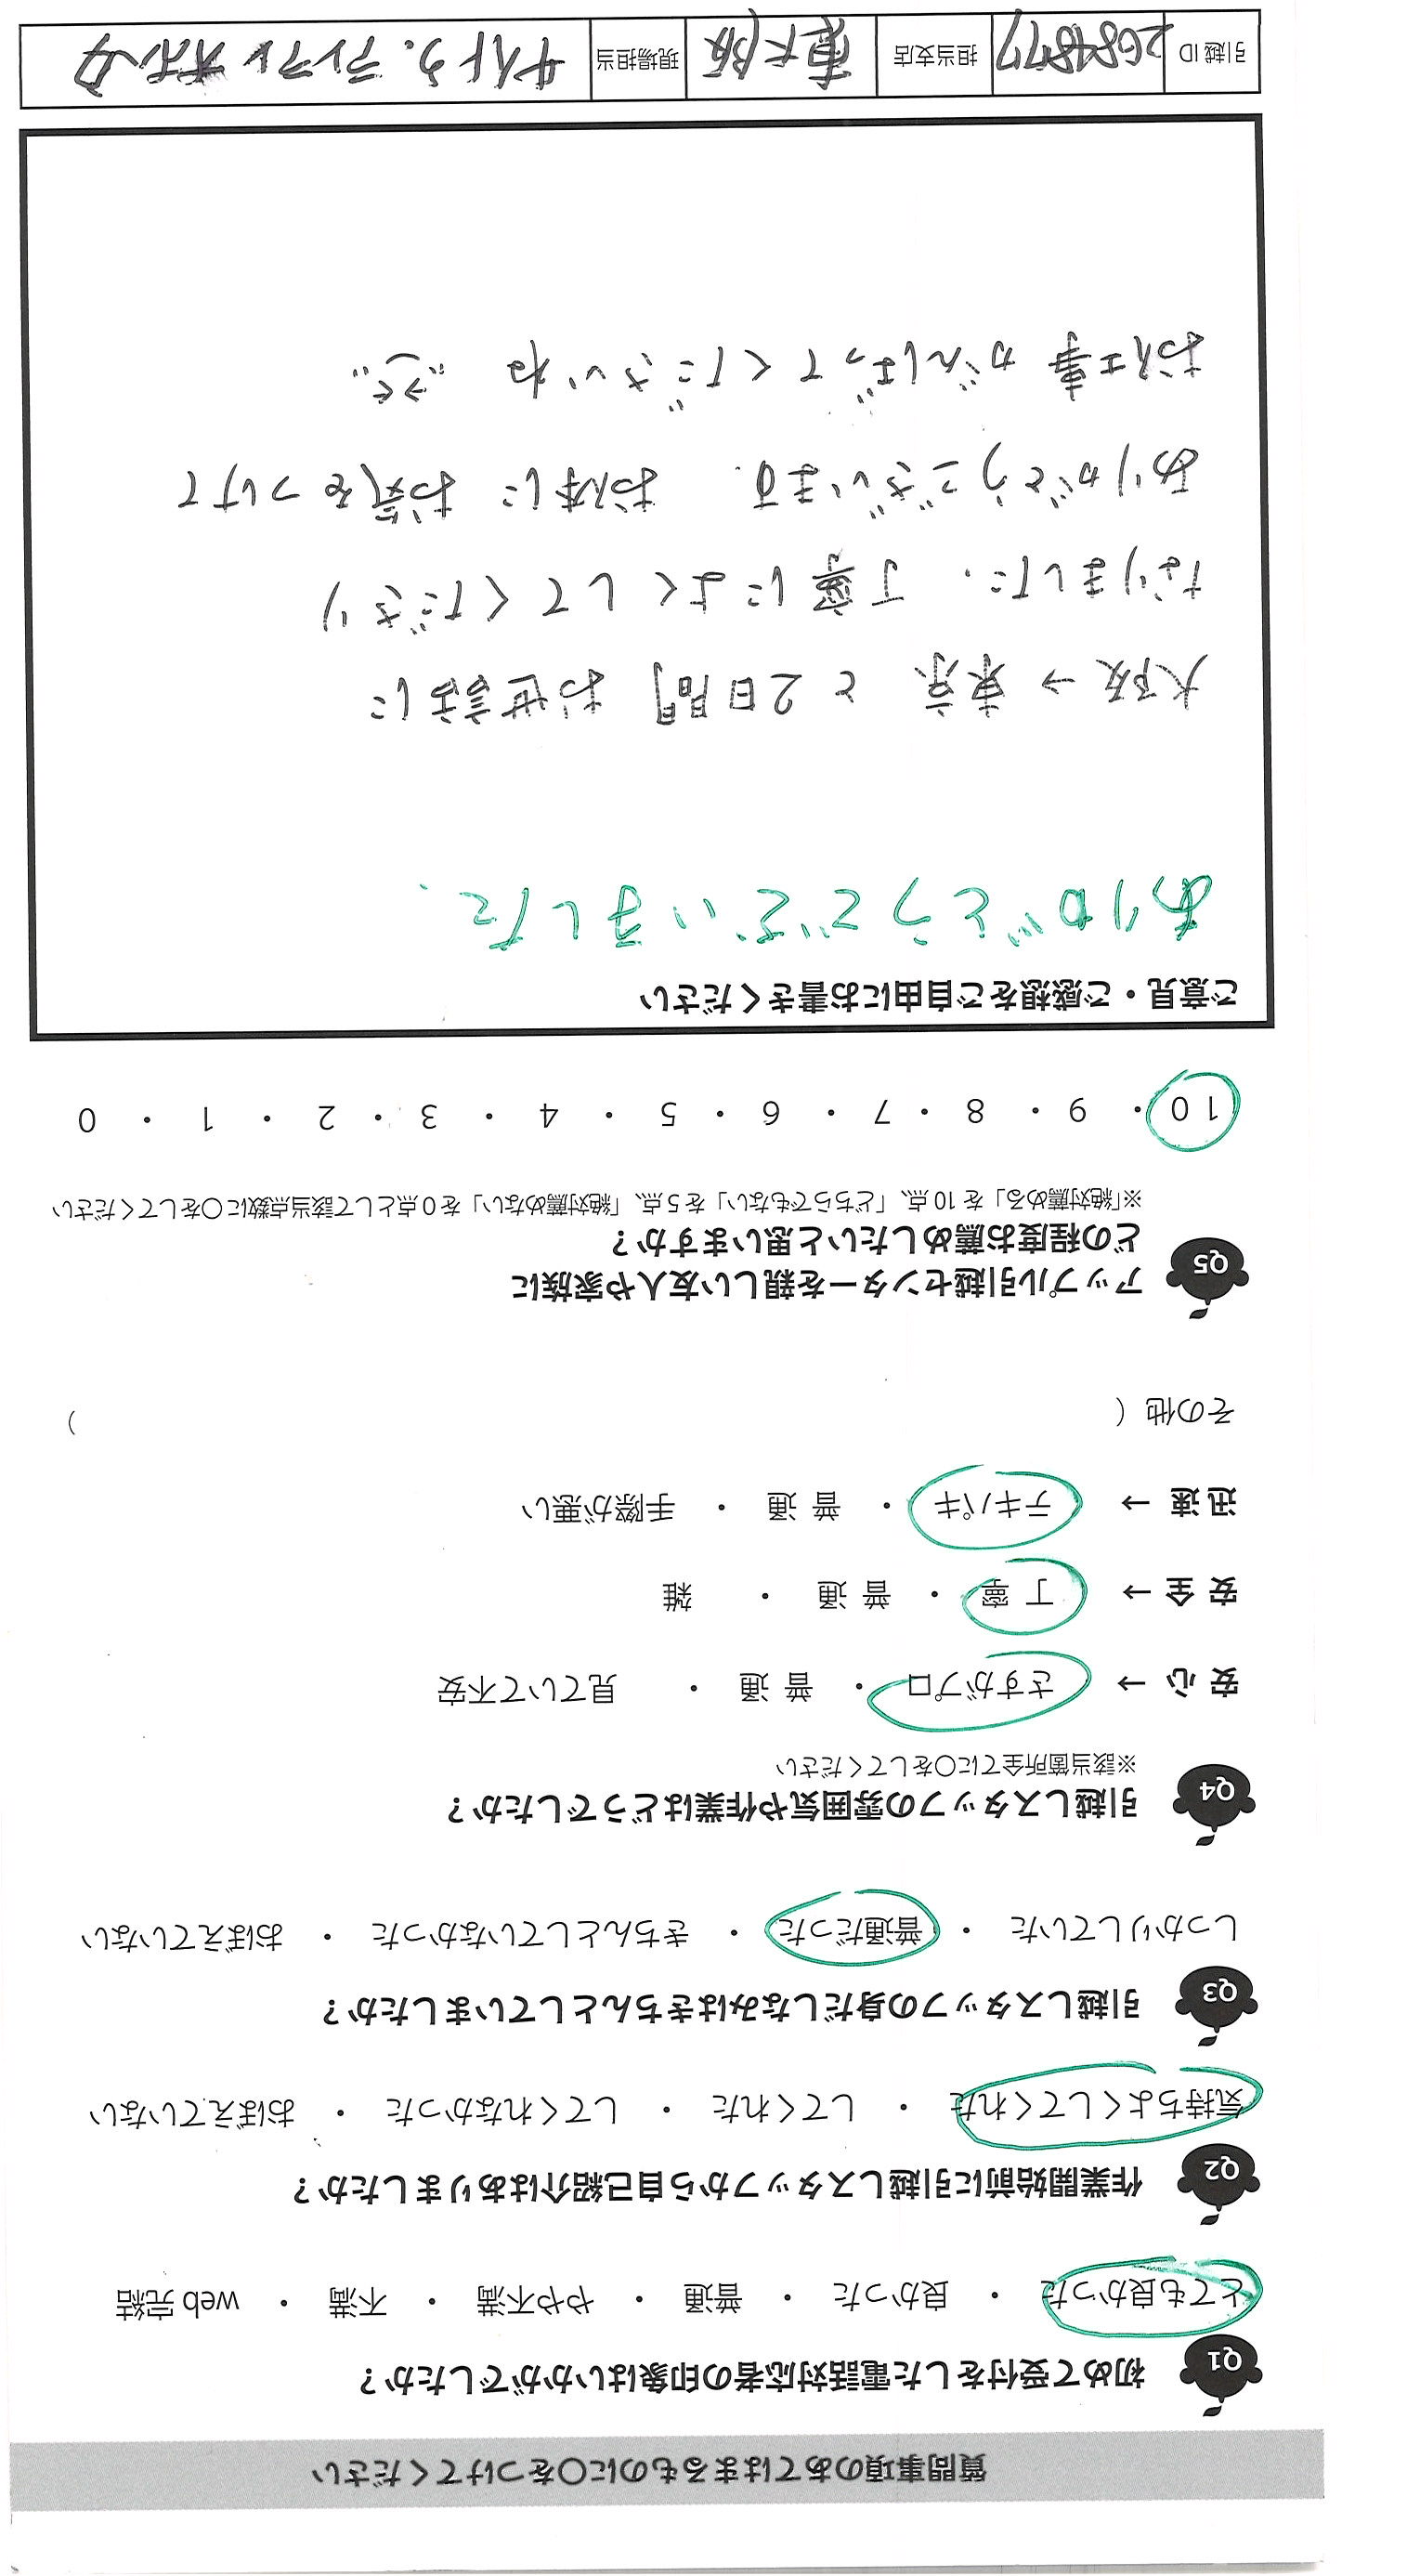 質問事項のあてはまるものに○をつけてください
Q1 初めて受付をした電話対応者の印象はいかがでしたか？
とても良かった ・ 良かった ・ 普通 ・ やや不満 ・ 不満 ・ web 完結
Q2 作業開始前に引越しスタッフから自己紹介はありましたか？
気持ちよくしてくれた ・ してくれた ・ してくれなかった ・ おぼえていない
Q3 引越しスタッフの身だしなみはきちんとしていましたか？
しっかりしていた ・ 普通だった ・ きちんとしていなかった ・ おぼえていない
Q4 引越しスタッフの雰囲気や作業はどうでしたか？
※該当箇所全てに○をしてください
安 心 → さすがプロ ・ 普 通 ・ 見ていて不安
安 全 → 丁 寧 ・ 普 通 ・ 雑
迅 速 → テキパキ ・ 普 通 ・ 手際が悪い
その他（ ）
Q5 アップル引越センターを親しい友人や家族に
どの程度お薦めしたいと思いますか？
※「絶対薦める」を 10 点、「どちらでもない」を 5 点、「絶対薦めない」を 0 点として該当点数に○をしてください
10 ・ 9 ・ 8 ・ 7 ・ 6 ・ 5 ・ 4 ・ 3 ・ 2 ・ 1 ・ 0
ご意見・ご感想をご自由にお書きください
ありがとうございました.
大阪→東京 と 2日間 お世話に
なりました. 丁寧によくしてくださり
ありがとうございます. お体に お気をつけて
お仕事 がんばってくださいね
引越 ID 2684877 担当支店 東大阪 現場担当